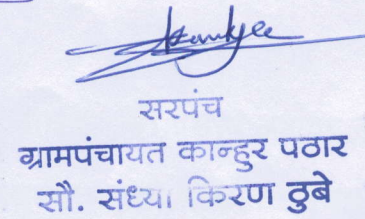 सरपंच
ग्रामपंचायत कान्हुर पठार
सौ. संध्या किरण ठुबे